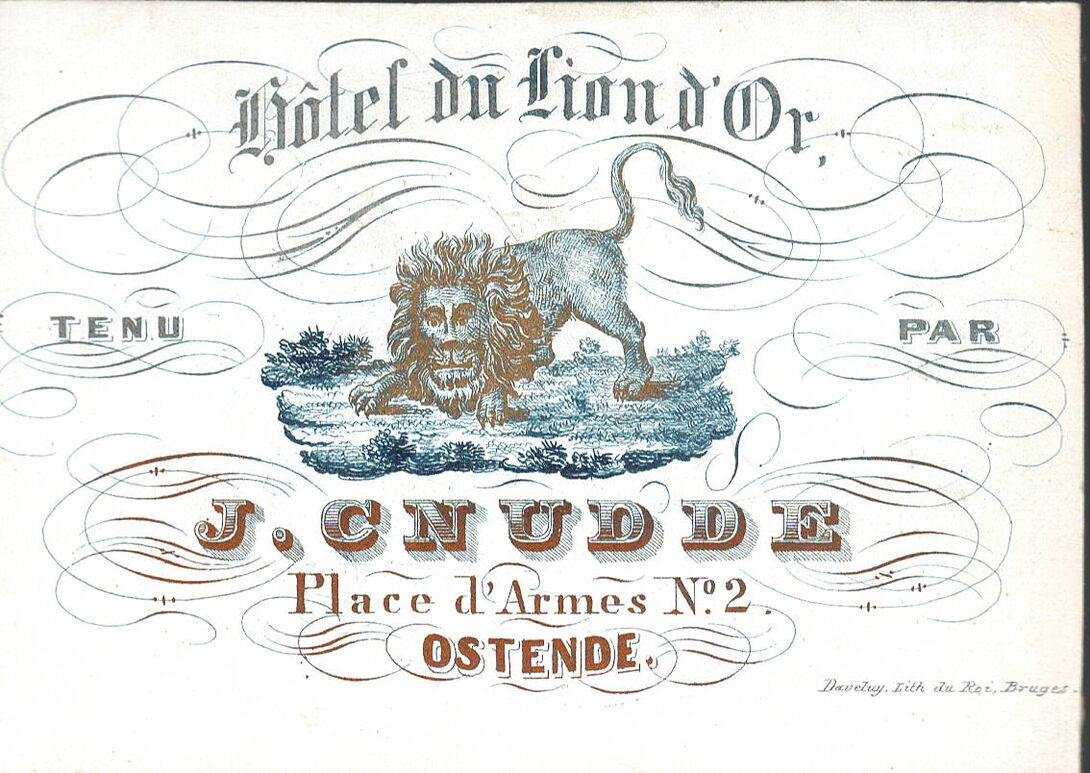 Hôtel du Lion d'Or,
TENU PAR
J. CNUDDE
Place d'Armes Nº. 2.
OSTENDE.
Daveluy, Lith du Roi, Bruges